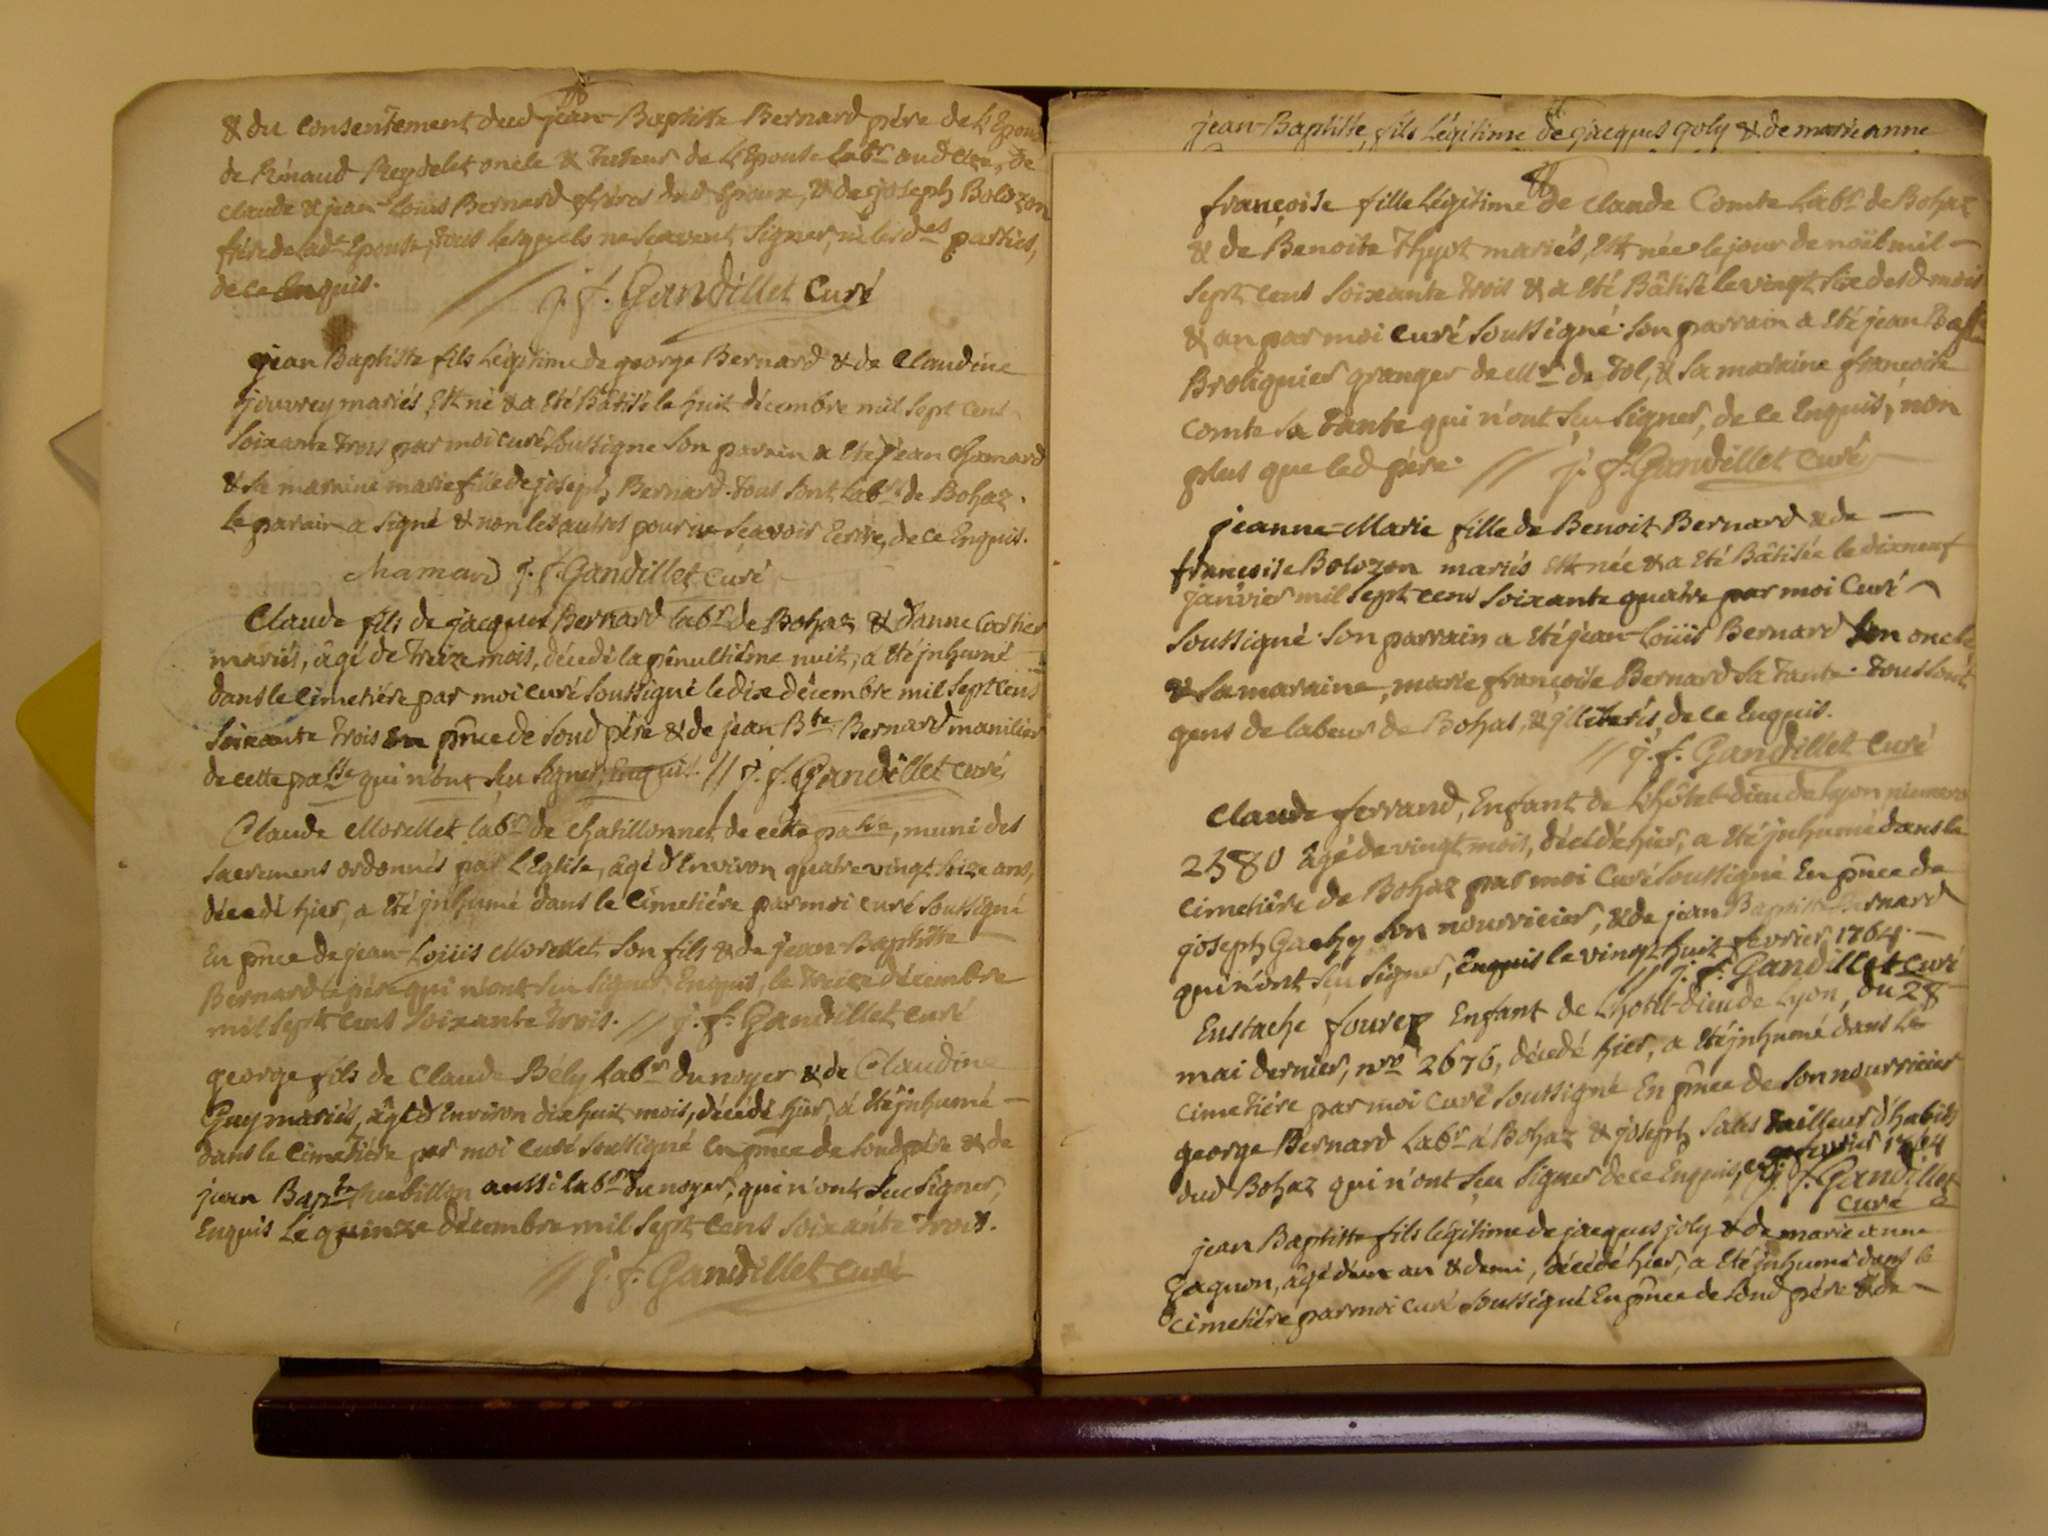 & du consentement dud jean-Baptiste Bernard pére de l'Epoux
de Rénaud Reydelet oncle & tuteur de l'Epouse labr aud Cize, de
claude & jean-Loüis Bernard fréres dud Epoux, & de joseph Bolozon
frére de lad.e Epouse, tous lesquels ne sçavent signer, ni lesd.es parties,
de ce Enquis. // j. f. Gandillet Curé
jean Baptiste fils légitime de george Bernard & de Claudine
jouvrey mariés Est né & a Eté Bâtisé le huit décembre mil sept cens
soixante trois par moi curé soussigné son parain a Eté jean Chamard
& sa maraine marie fille de joseph Bernard. tous sont labrs de Bohaz.
le parain a signé & non les autres pour ne sçavoir Ecrire, de ce Enquis.
Chamard j. f. Gandillet curé
Claude fils de jacques Bernard labr de Bohaz & d'anne Cortier
mariés, âgé de treize mois, décedé la pénultiéme nuit, a Eté jnhumé
dans le Cimetiére par moi curé soussigné le dix décembre mil sept cens
soixante trois En pñce de sond pére & de jean Bte Bernard manilier
de cette passe qui n'ont sçu signer, Enquis. // j. f. Gandillet curé
Claude Morellet labr de chatillonnet de cette passe, muni des
sacremens ordonnés par l'Eglise, âgé d'Environ quatre vingt seize ans,
décedé hier, a Eté jnhumé dans le Cimetiére par moi curé soussigné
En pñce de jean-Loüis Morellet son fils & de jean-Baptiste
Bernard le pére qui n'ont sçu signer Enquis, le treize décembre
mil sept cens soixante trois. // j. f. Gandillet curé
george fils de Claude Bély labr du noyer & de Claudine
Guy mariés, âgé d'Environ dix huit mois, décédé hier, a Eté jnhumé
dans le Cimetiére par moi curé soussigné En pñce de sond pére & de
jean Bapte aussi labr du noyer, qui n'ont sçu signer,
Enquis le quinze décembre mil sept cens soixante trois.
// j. f. Gandillet curé
jean-Baptiste, fils légitime de jacques joly & de marie anne
françoise fille légitime de claude Comte labr de Bohaz
& de Benoite Thyvt mariés, Est née le jour de noël mil
sept cens soixante trois & a Eté Bâtisé le vingt six desd mois
& an par moi curé soussigné. son parrain a Eté jean
granger de Mr de Dol, & sa maraine françoise
comte sa tante qui n'ont sçu signer, de ce Enquis, non
plus que led pére. // j. f. Gandillet curé
jeanne-Marie fille de Benoit Bernard & de
françoise Bolozon mariés Est née & a Eté Bâtisée le dixneuf
janvier mil sept cens soixante quatre par moi Curé
soussigné. son parrain a Eté jean-Loüis Bernard son oncle
& sa maraine, marie françoise Bernard sa tante. tous sont
gens de labeur de Bohas, & jlliterés, de ce Enquis.
// j. f. Gandillet curé
Claude ferrand, Enfant de l'hôtel-dieu de lyon, numero
2380 âgé de vingt mois, décédé hier, a Eté jnhumé dans le
cimetiére de Bohaz par moi Curé soussigné En pñce de
joseph son nourricier, & de jean Baptiste Bernard
qui n'ont sçu signer, Enquis le vingt huit fevrier 1764.
// j. f. Gandillet curé
Eustache Enfant de l'hotel-dieu de lyon, du 28
mai dernier, nro 2676, décedé hier, a Eté jnhumé dans le
cimetiére par moi curé soussigné En pñce de son nourricier
george Bernard labr à Bohaz & joseph Sales tailleur d'habits
dud Bohaz qui n'ont sçu signer de ce Enquis, fevrier 1764
j. f. Gandillet
curé
jean Baptiste fils légitime de jacques joly & de marie anne
Gagnon, âgé d'un an & demi, décédé hier, a Eté jnhumé dans le
cimetiére par moi curé soussigné En pñce de sond pére & de